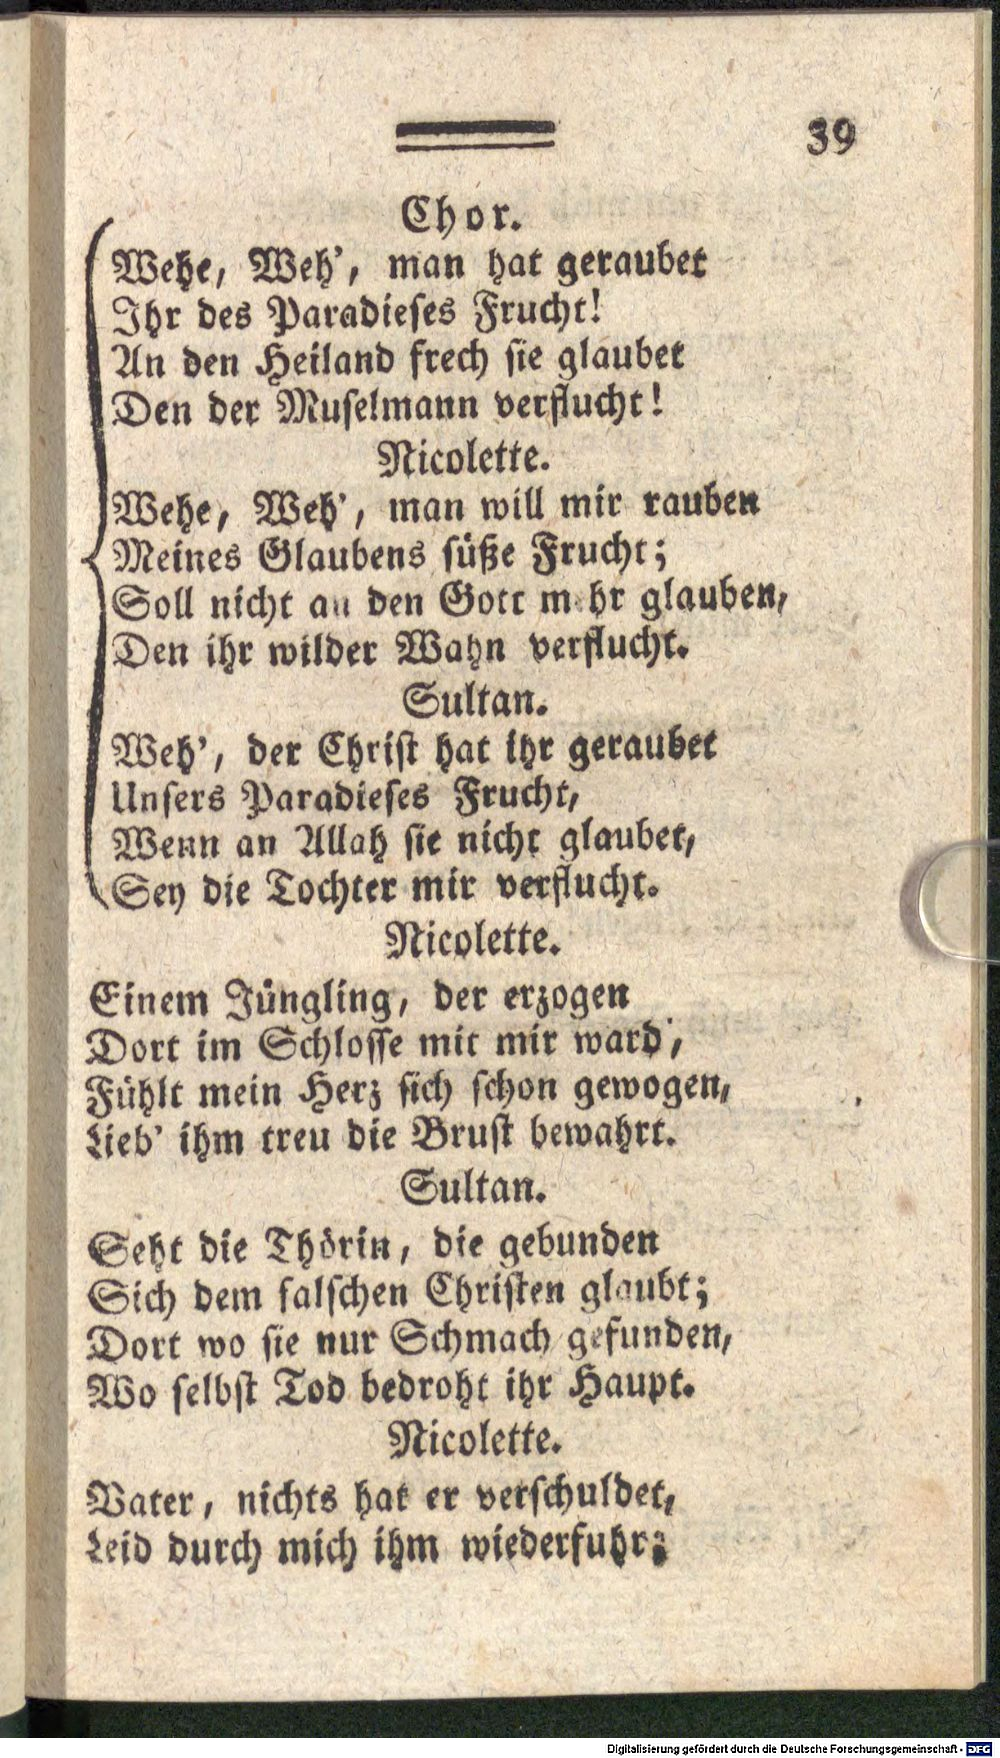 39
Chor.
Wehe, Weh', man hat geraubet
Ihr des Paradieſes Frucht!
An den Heiland frech ſie glaubet
Den der Muſelmann verflucht!
Nicolette.
Wehe, Weh', man will mir rauben
Meines Glaubens ſüße Frucht;
Soll nicht an den Gott mehr glauben,
Den ihr wilder Wahn verflucht.
Sultan.
Weh', der Chriſt hat ihr geraubet
Unſers Paradieſes Frucht,
Wenn an Allah ſie nicht glaubet,
Sey die Tochter mir verflucht.
Nicolette.
Einem Jüngling, der erzogen
Dort im Schloſſe mit mir ward,
Fühlt mein Herz ſich ſchon gewogen,
Lieb' ihm treu die Bruſt bewahrt.
Sultan.
Seht die Thörin, die gebunden
Sich dem falſchen Chriſten glaubt;
Dort wo ſie nur Schmach gefunden,
Wo ſelbſt Tod bedroht ihr Haupt.
Nicolette.
Vater, nichts hat er verſchuldet,
Leid durch mich ihm wiederfuhr;
Digitalisierung gefördert durch die Deutsche Forschungsgemeinschaft - DFG